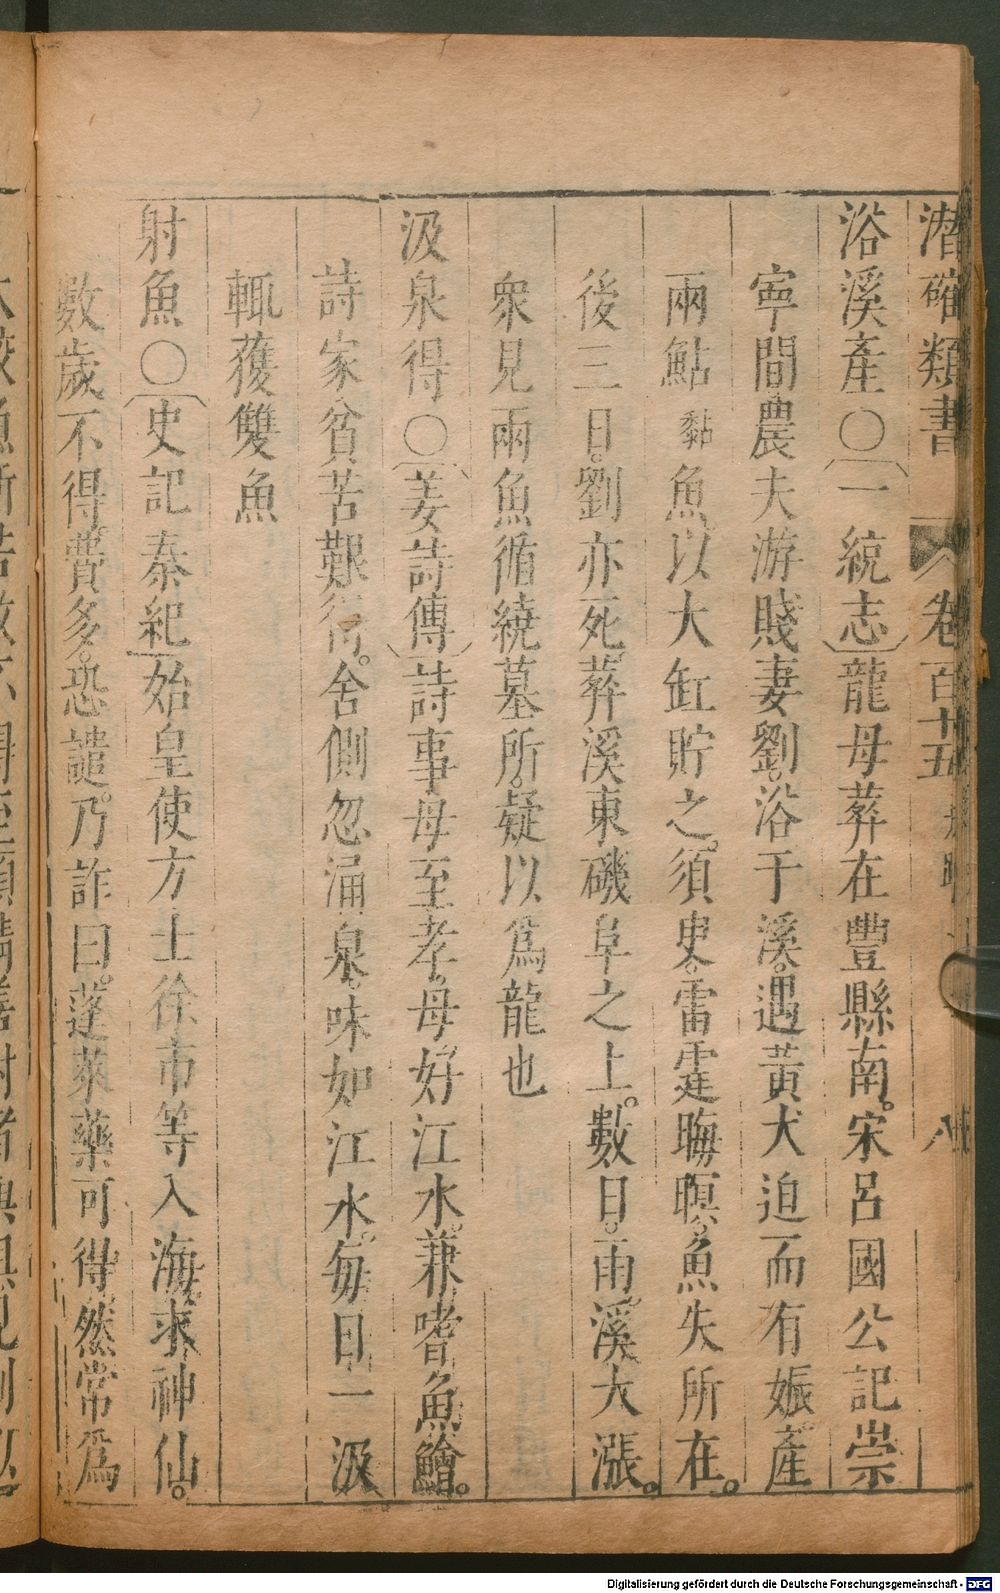 潛確類書 卷百十五 八
浴溪產○〔一統志〕龍母葬在豐縣南。宋呂國公記崇
寧間農夫游賤妻劉。浴于溪。遇黃犬迫而有娠產
兩鮎黏魚以大缸貯之。須臾。雷霆晦暝。魚失所在。
後三日。劉亦死葬溪東磯阜之上。數日。雨溪大漲。
衆見兩魚循繞墓所。疑以爲龍也
汲泉得○〔姜詩傳〕詩事母至孝。母好江水。兼嗜魚鱠。
詩家貧苦艱得。舍側忽涌泉。味如江水。每日一汲
輒獲雙魚
射魚○〔史記秦紀〕始皇使方士徐市等入海求神仙。
數歲不得費多。恐譴。乃詐曰。蓬萊藥可得然常爲
Digitalisierung gefördert durch die Deutsche Forschungsgemeinschaft - DFG